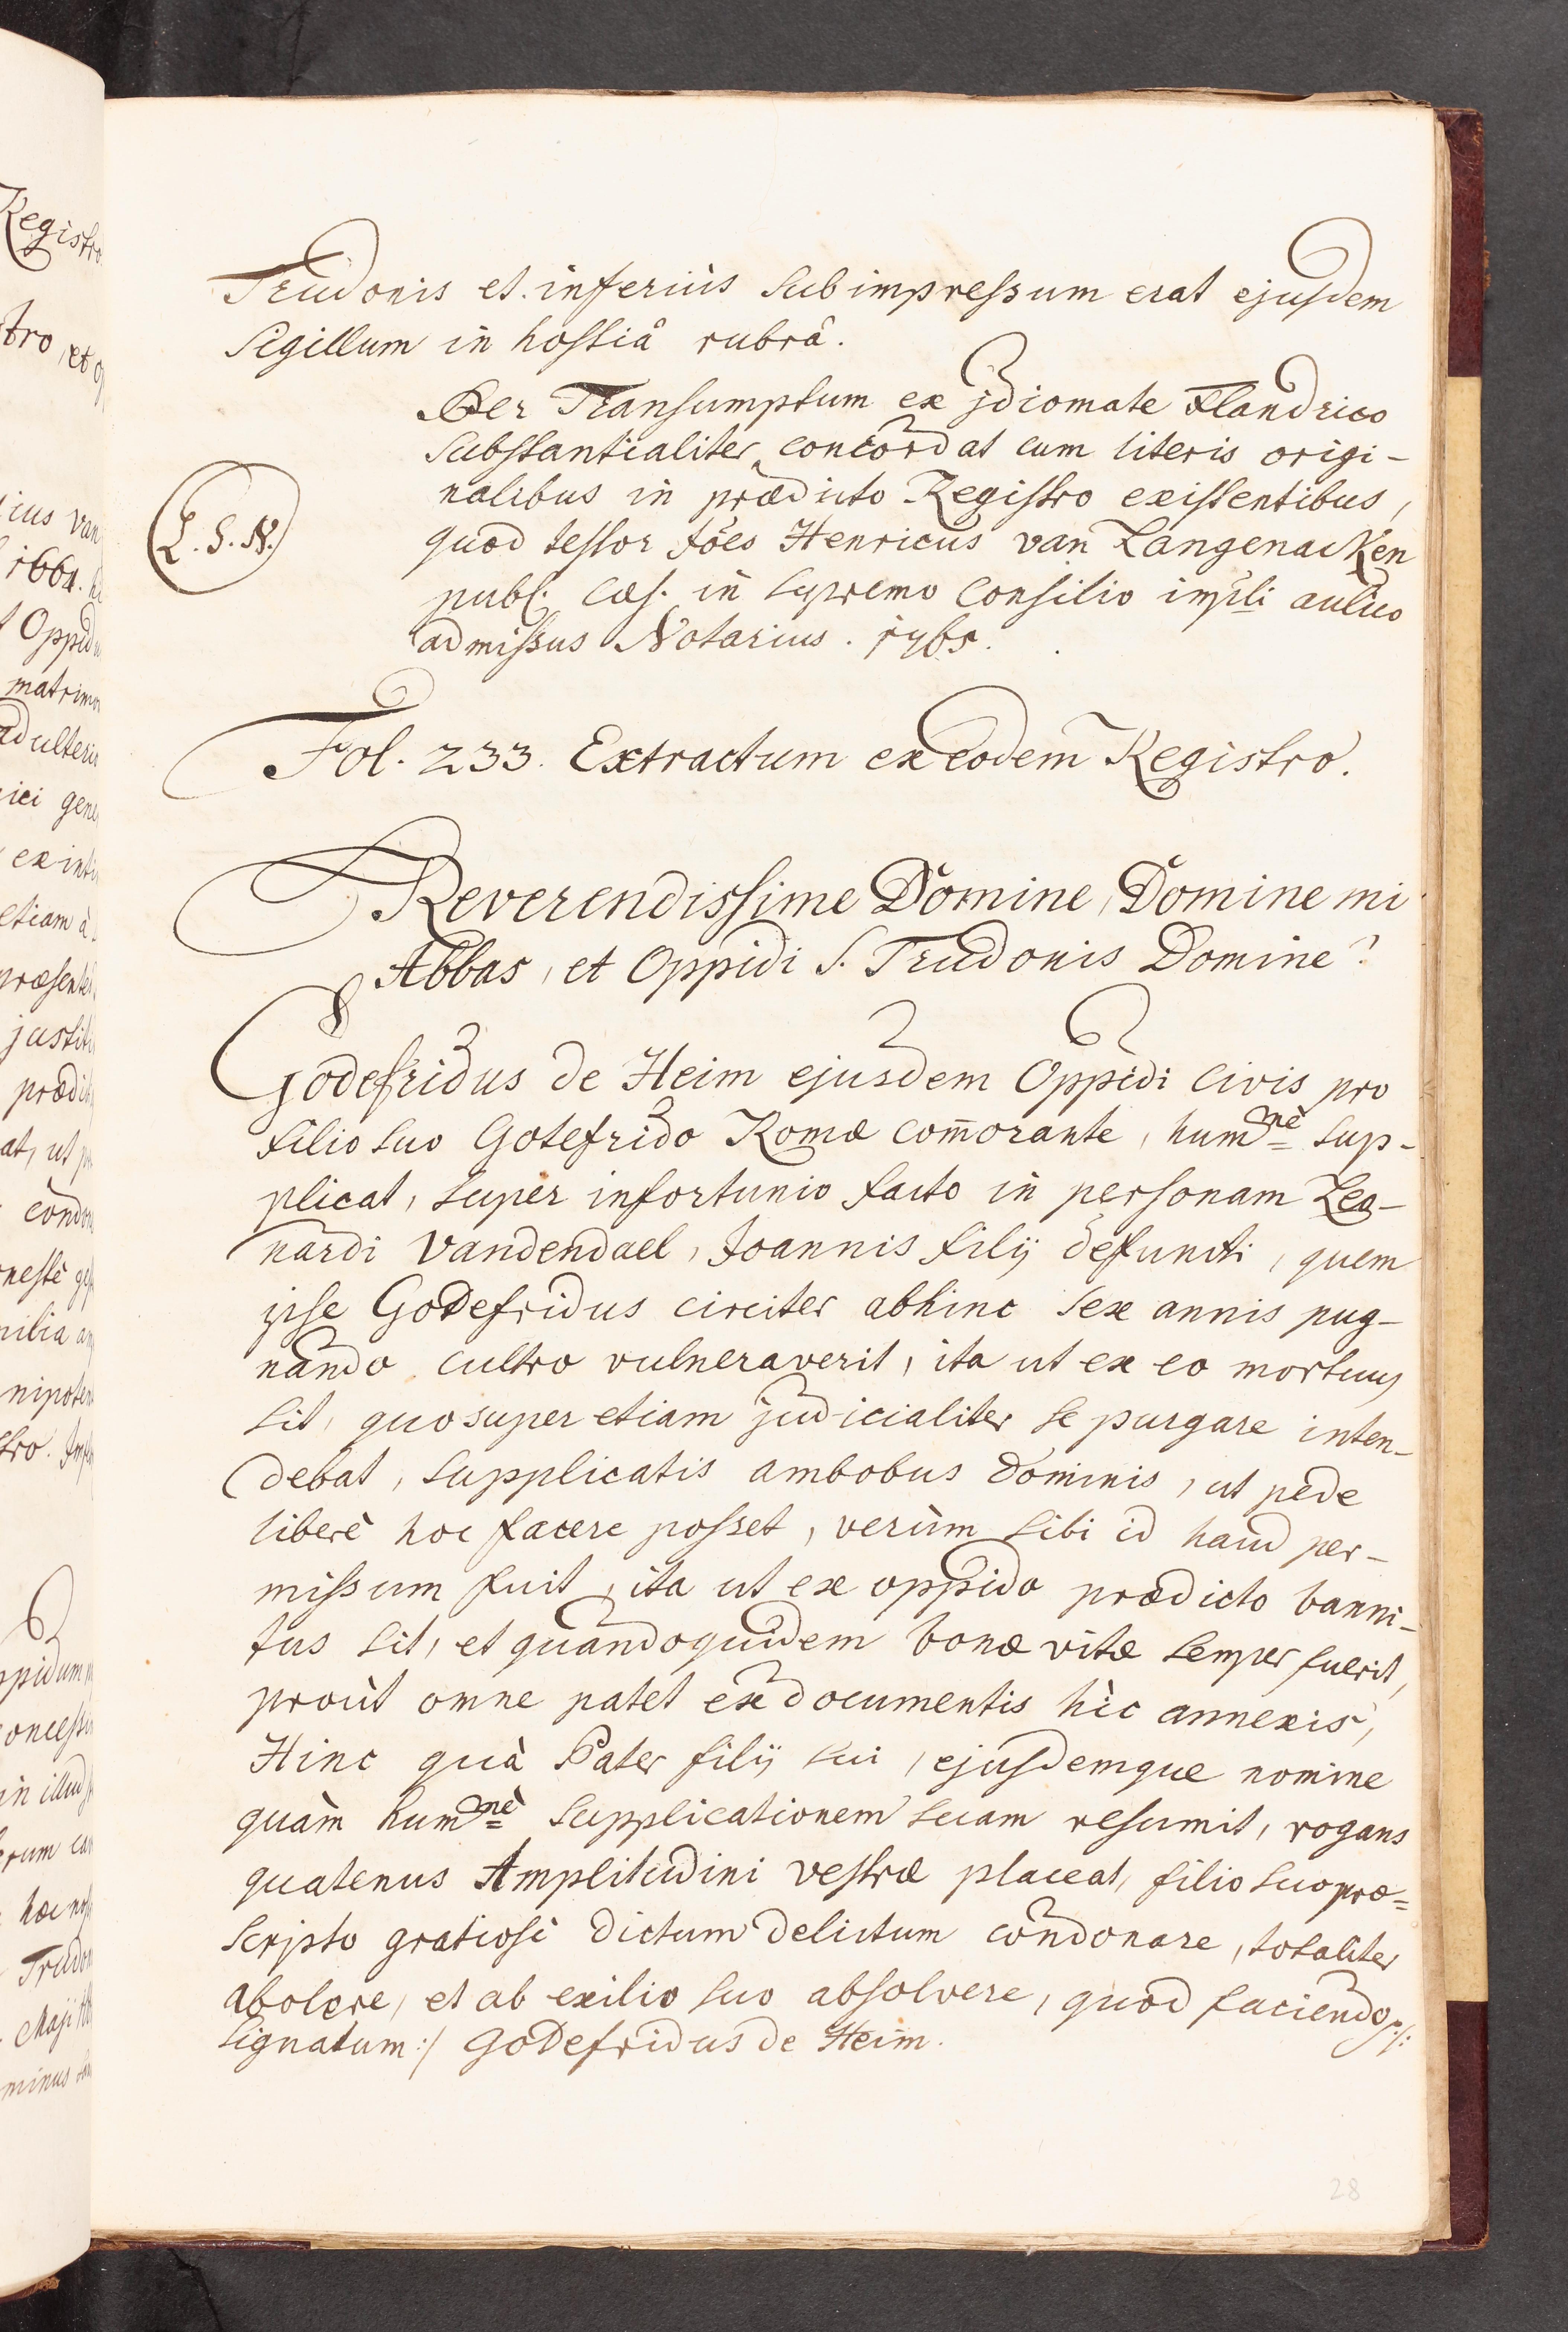 Trudonis et inferius subimpressum erat ejusdem
sigillum in hostiâ rubrâ.
Per Transumptum ex jdiomate Flandrico
substantialiter concordat cum literis origi-
nalibus in prædicto Registro existentibus,
L. S. N.
quod testor Jões Henricus van Langenacken
publ. cæs. in supremo consilio impli aulico
admissus Notarius. 1765.
Fol. 233. Extractum ex eodem Registro.
Reverendissime Domine, Domine mi
Abbas, et Oppidi S. Trudonis Domine
Godefridus de Heim ejusdem Oppidi civis pro
filio suo Gotefrido Romæ com̄orante, hum.nè sup-
plicat, super infortunio facto in personam Leo-
nardi Vandendael, Joannis filij defuncti, quem
ipse Godefridus circiter abhinc sex annis pug-
nando cultro vulneraverit, ita ut ex eo mortuus
sit, quo super etiam judicialiter se purgare inten-
debat, supplicatis ambobus Dominis, ut pede
liberè hoc facere posset, verùm sibi id haud per-
missum fuit, ita ut ex oppido prædicto banni-
tus sit, et quandoquidem bonæ vitæ semper fuerit,
proùt omne patet ex documentis hìc annexis,
Hinc quà Pater filij sui, ejusdemque nomine
quàm hum.nè supplicationem suam resumit, rogans
quatenus Amplitudini vestræ placeat, filio suo præ=
scripto gratiosè dictum delictum condonare, totaliter
abolere, et ab exilio suo absolvere, quod faciendo /:
signatum :/ Godefridus de Heim.
28